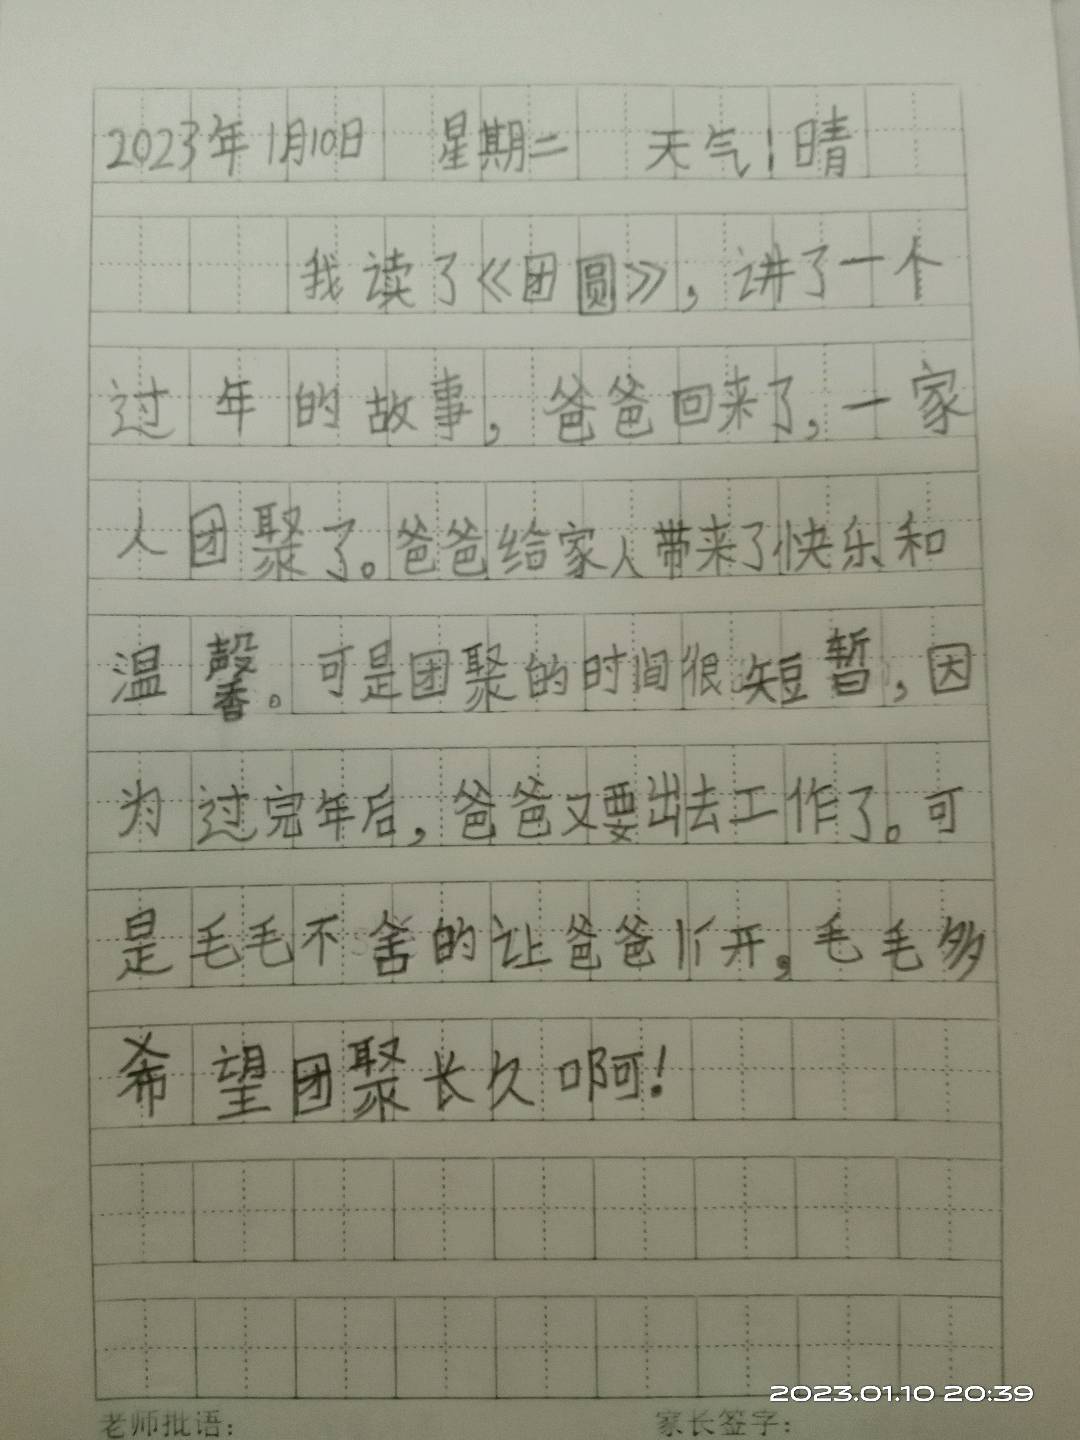 2023年1月10日 星期二 天气!晴
我读了《团圆》,讲了一个
过年的故事,爸爸回来了,一家
人团聚了。爸爸给家人带来了快乐和
温馨。可是团聚的时间很短暂,因
为过完年后,爸爸又要出去工作了。可
是毛毛不舍的让爸爸 开。毛毛多
希望团聚长久啊!
老师批语: 家长签字:
2023.01.10 20:39